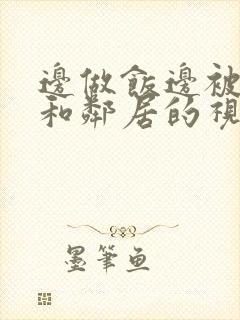 邊做飯邊被
和鄰居的視
墨筆魚